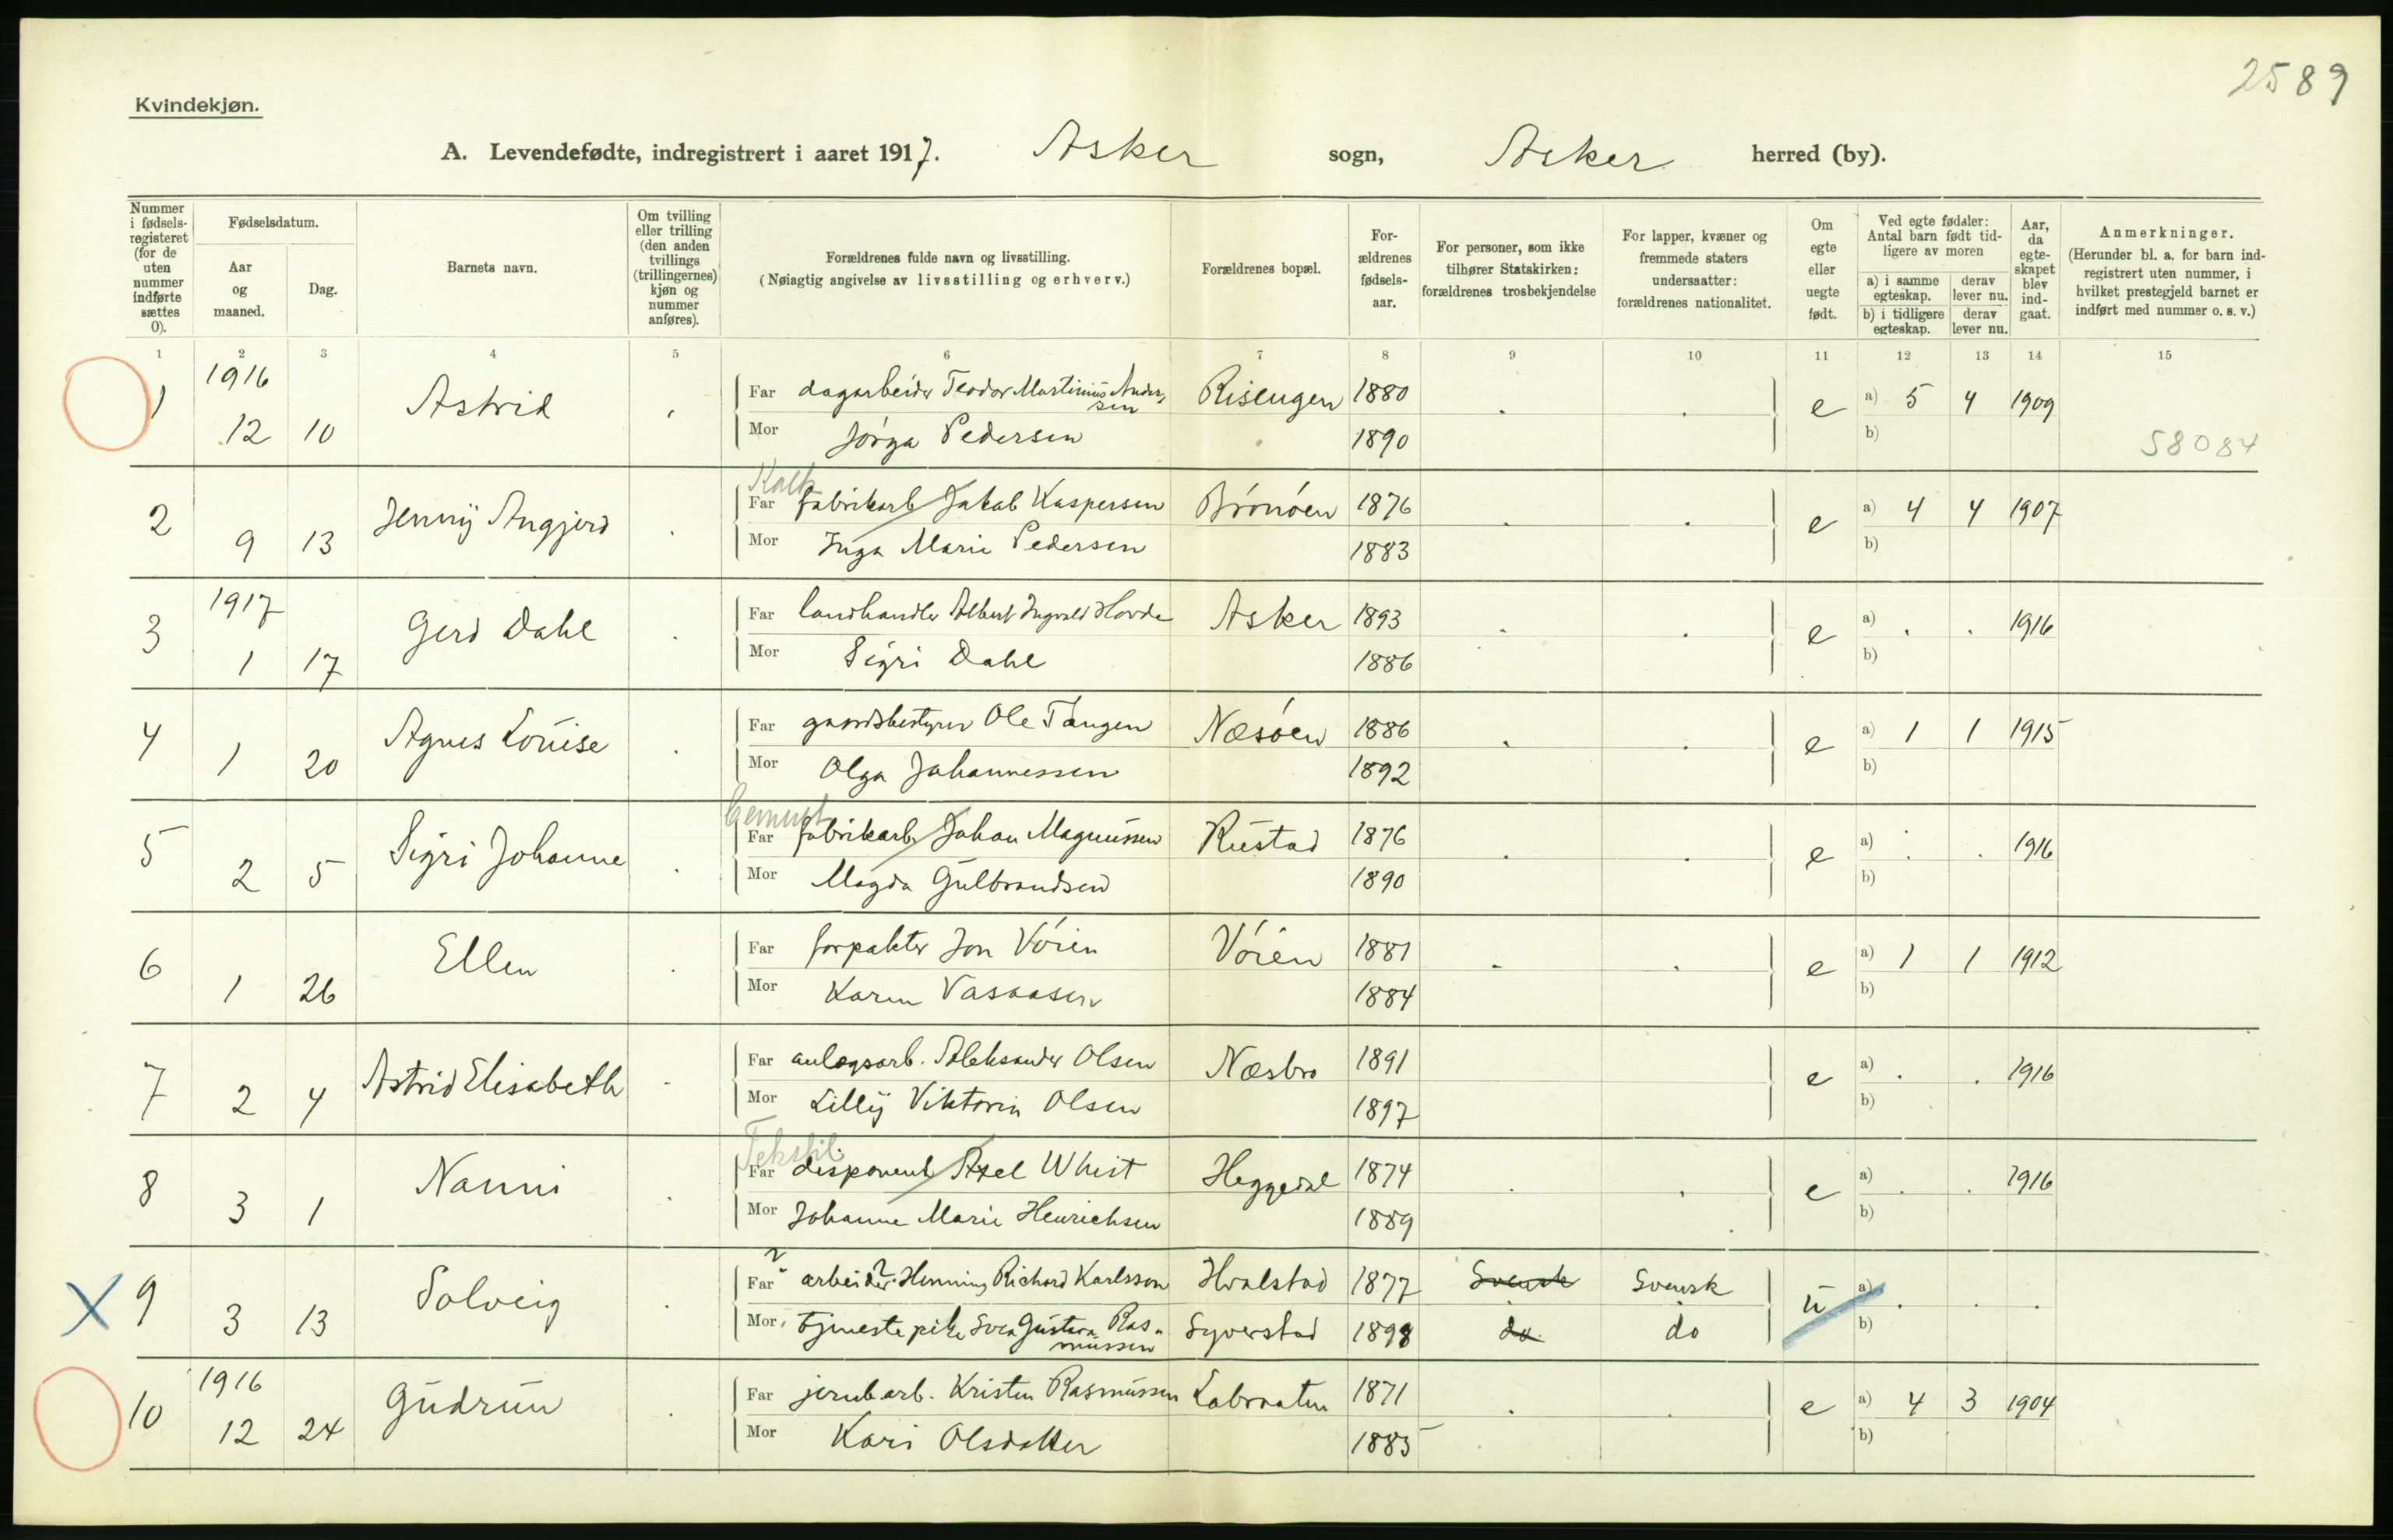 2589
Kvindekjøn.
A. Levendefødte, indregistrert i aaret 1917. Asker sogn, Asker herred (by).
Nummer i fødselsregisteret (for de uten nummer indførte sættes 0).
Fødselsdatum.
Aar og maaned.
Dag.
Barnets navn.
Om tvilling eller trilling (den anden tvillings (trillingernes) kjøn og nummer anføres).
Forældrenes fulde navn og livsstilling.
(Nøiagtig angivelse av livsstilling og erhverv.)
Forældrenes bopæl.
Forældrenes fødselsaar.
For personer, som ikke tilhører Statskirken: forældrenes trosbekjendelse
For lapper, kvæner og fremmede staters undersaatter: forældrenes nationalitet.
Om egte eller uegte født.
Ved egte fødsler: Antal barn født tidligere av moren
a) i samme egteskap. derav lever nu.
b) i tidligere egteskap. derav lever nu.
Aar, da egteskapet blev indgaat.
Anmerkninger.
(Herunder bl. a. for barn indregistrert uten nummer, i hvilket prestegjeld barnet er indført med nummer o. s. v.)
1 2 3 4 5 6 7 8 9 10 11 12 13 14 15
1916
1 12 10 Astrid
Far dagarbeider Teodor Martinius Andersen Risengen 1880 e a) 5 4 1909
Mor Jørga Pedersen 1890 b)
58084
Kalk
2 9 13 Jenny Angjerd
Far fabrikarb Jakob Kaspersen Brønøen 1876 e a) 4 4 1907
Mor Inga Marie Pedersen 1883 b)
1917
3 1 17 Gerd Dahl
Far landhandler Albert Ingvald Hovde Asker 1893 e a) . . 1916
Mor Sigri Dahl 1886 b)
4 1 20 Agnes Louise
Far gaardsbestyrer Ole Tangen Næsøen 1886 e a) 1 1 1915
Mor Olga Johannessen 1892 b)
Cement
5 2 5 Sigri Johanne
Far fabrikarb. Johan Magnussen Rustad 1876 e a) . . 1916
Mor Magda Gulbrandsen 1890 b)
6 1 26 Ellen
Far forpakter Jon Vøien Vøien 1881 e a) 1 1 1912
Mor Karen Vasaasen 1884 b)
7 2 4 Astrid Elisabeth
Far anlægsarb. Aleksander Olsen Næsbro 1891 e a) . . 1916
Mor Lilly Viktoria Olsen 1897 b)
Tekstil
8 3 1 Nanni
Far disponent Axel Whist Heggedal 1874 e a) . . 1916
Mor Johanne Marie Henrichsen 1889 b)
X 9 3 13 Solveig
Far arbeider Henning Richard Karlsson Hvalstad 1877 Svensk Svensk u a) . . .
Mor tjenestepike Svea Gustava Rasmussen Syverstad 1898 do. do b)
1916
10 12 24 Gudrun
Far jernbarb. Kristen Rasmussen Labraaten 1871 e a) 4 3 1904
Mor Kari Olsdatter 1885 b)